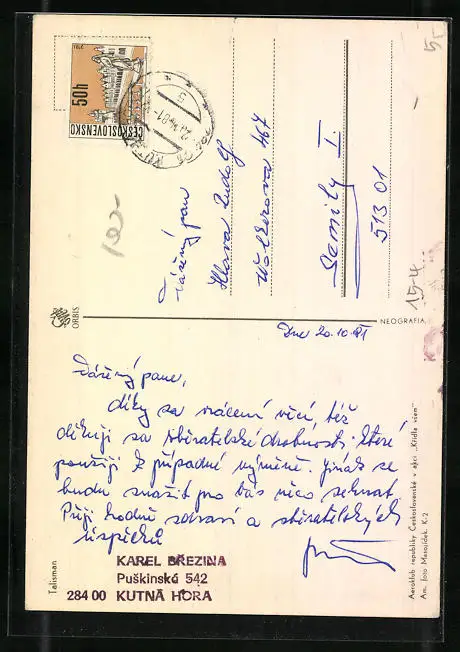 50h
ČESKOSLOVENSKO
Vážený pan
Hlava Rudolf
Wolkerova 467
Semily I.
513 01
15-4
ORBIS
NEOGRAFIA,
Dne 20.10.81
Vážený pane,
díky za vrácení věcí, též
děkuji za sběratelské drobnosti které
použiji k případné výměně. Jinak se
budu snažit pro Vás něco sehnat.
Přeji hodně zdraví a sběratelských
úspěchů
KAREL BŘEZINA
Puškinská 542
284 00 KUTNÁ HORA
Talisman
Aeroklub republiky Československé v akci „Křídla všem"
Am. foto Matějíček K-2